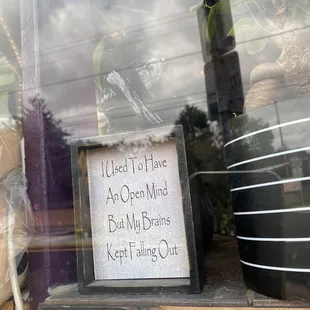 I Used To Have
An Open Mind
But My Brains
Kept Falling Out